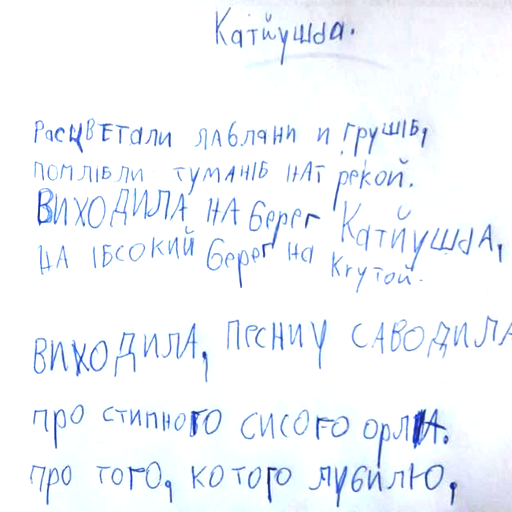 Катйушда.
Расцветали лабляни и грушiб,
помлiбли туманiб нат рекой.
виходила на берег Катйушда,
на iбсокий берег на крутой.
виходила, песниу саводила
про стипного сисого орла.
про того, котого лубилю,